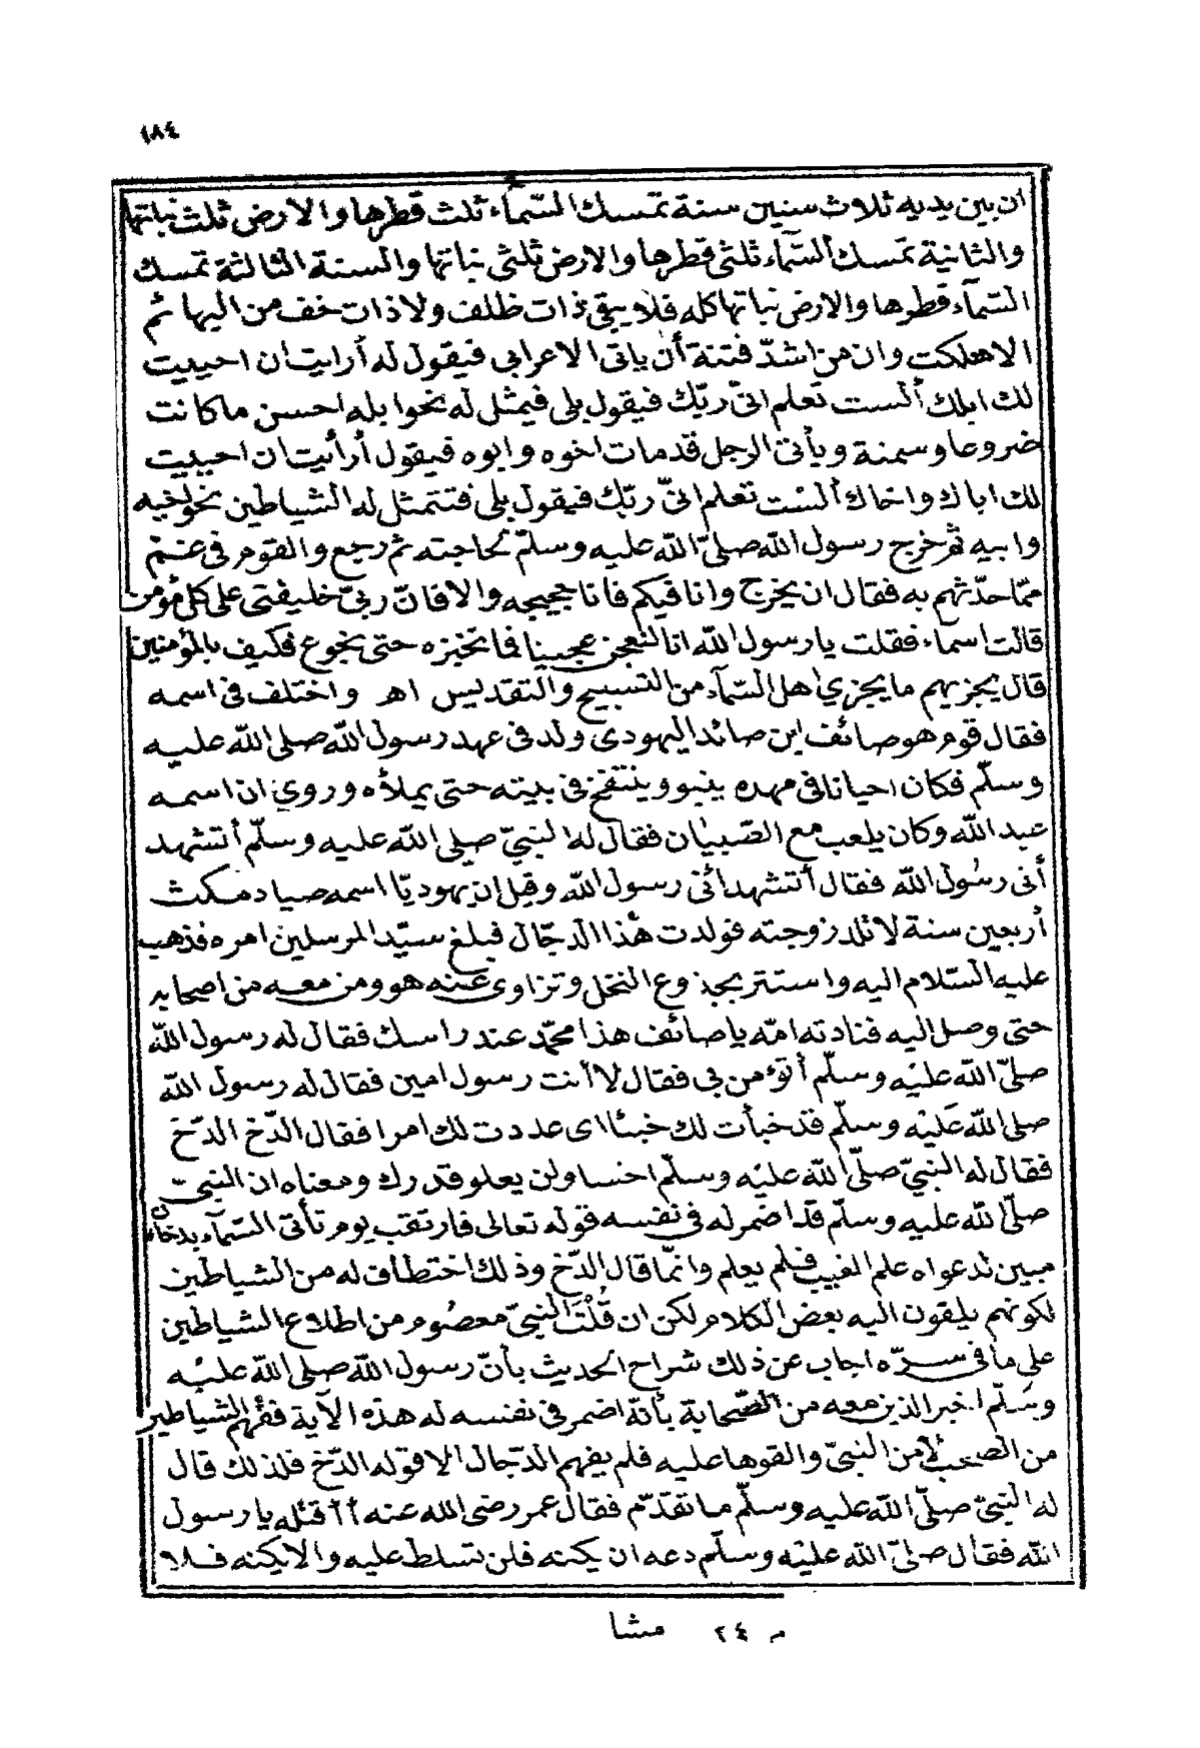 ١٨٤
ان بين يديه ثلاث سنين سنة تمسك السّمآء ثلث قطرها والارض ثلث نباتها
والثانية تمسك السّمآء ثلثى قطرها والارض ثلثى نباتها والسنة الثالثة تمسك
السّمآء قطرها والارض نباتها كله فلا يبقى ذات ظلف ولا ذات خف من البهائم
الا هلكت وان من اشدّ فتنة أن ياتى الاعرابى فيقول له أرايت ان احييت
لك ابلك ألست تعلم انّى ربّك فيقول بلى فيمثل له نحوا بله احسن ما كانت
ضروعا وسمنة ويأتى الرجل قد مات اخوه وابوه فيقول أرأيت ان احييت
لك اباك واخاك ألست تعلم انىّ ربّك فيقول بلى فتتمثل له الشياطين نحو اخيه
وابيه ثم خرج رسول الله صلىّ الله عليه وسلّم لحاجته ثم رجع والقوم فى غم
ممّا حدّثهم به فقال ان يخرج وانا فيكم فانا حجيجه والا فانّ ربىّ خليفتى على كل مؤمن
قالت اسماء فقلت يا رسول الله انا لنعجن عجيننا فما نخبزه حتى نجوع فكيف بالمؤمنين
قال يجزيهم ما يجزي اهل السّمآء من التسبيح والتقديس اهـ واختلف فى اسمه
فقال قوم هو صائف ابن صائد اليهودى ولد فى عهد رسول الله صلى الله عليه
وسلّم فكان احيانا فى مهده ينبو وينتفخ فى بيته حتى يملأه وروي ان اسمه
عبد الله وكان يلعب مع الصّبيان فقال له النبيّ صلى الله عليه وسلّم أتشهد
أنى رسُول الله فقال أتشهد انى رسول الله وقيل ان يهوديّا اسمه صياد مكث
أربعين سنة لا تلد زوجته فولدت هذا الدجّال فبلغ سيّد المرسلين امره فذهب
عليه السّلام اليه واستتر بجذوع النخل وتزاوى عنه هو ومن معه من اصحابه
حتى وصل اليه فنادته امّه يا صائف هذا محمّد عند راسك فقال له رسول الله
صلىّ الله عليْه وسلّم أتؤمن بى فقال لا أنت رسول امين فقال له رسول الله
صلى الله عَليْه وسلّم قد خبأت لك خبئا اى عددت لك امرا فقال الدّخ الدّخ
فقال له النبيّ صلّى الله عليْه وسلّم اخسا ولن يعلو قدرك ومعناه ان النبىّ
صلّى الله عليه وسلّم قد اضمر له فى نفسه قوله تعالى فارتقب يوم تأتى السّمآء بدخان
مبين لدعواه علم الغيب فلم يعلم وانمّا قال الدّخ وذلك اختطاف له من الشياطين
لكونهم يلقون اليه بعض الكلام لكن ان قُلْت النبىّ معصُوم من اطلاع الشياطين
على ما فى سرّه اجاب عن ذلك شراح الحديث بأنّ رسول الله صلى الله عليْه
وسَلّم اخبر الذين معه من الصّحابة بأنّه اضمر فى نفسه له هذه الآية ففهم الشياطين
من الصحب لا من النبىّ والقوها عليه فلم يفهم الدّجال الا قوله الدّخ فلذلك قال
له النبىّ صلّى الله عليه وسلّم ما تقدّم فقال عمر رضى الله عنه أأقتله يا رسول
الله فقال صلىّ الله عليْه وسلّم دعه ان يكنه فلن تسلط عليه والا يكنه فلا
م ٢٤ مشا